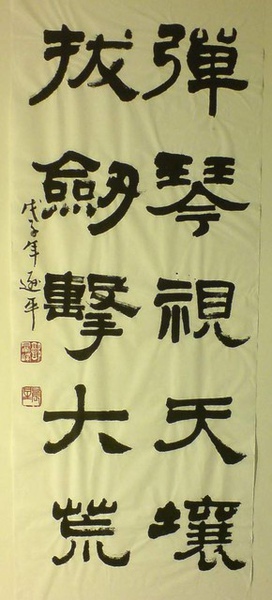 彈琴視天壤
拔劒擊大荒
戊子年 逐平